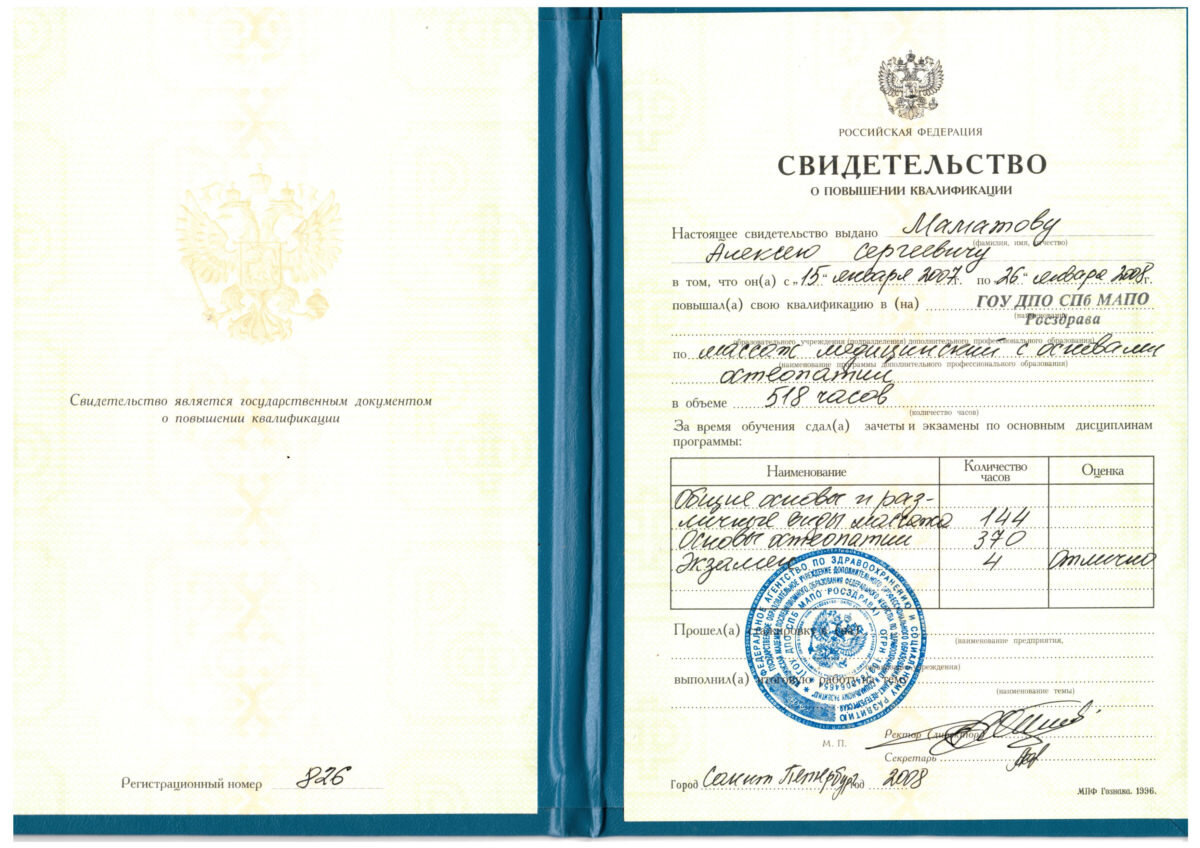 Свидетельство является государственным документом
о повышении квалификации
Регистрационный номер 826
РОССИЙСКАЯ ФЕДЕРАЦИЯ
СВИДЕТЕЛЬСТВО
О ПОВЫШЕНИИ КВАЛИФИКАЦИИ
Настоящее свидетельство выдано Маматову
(фамилия, имя, отчество)
Алексею Сергеевичу
в том, что он(а) с „15“ января 2007г. по „26“ января 2008г.
повышал(а) свою квалификацию в (на) ГОУ ДПО СПб МАПО
(наименование
Росздрава
образовательного учреждения (подразделения) дополнительного профессионального образования)
по массаж медицинский с основами
(наименование программы дополнительного профессионального образования)
остеопатии
в объеме 518 часов
(количество часов)
За время обучения сдал(а) зачеты и экзамены по основным дисциплинам
программы:
Наименование Количество часов Оценка
Общие основы и раз-
личные виды массажа 144
Основы остеопатии 370
Экзамен 4 отлично
Прошел(а) стажировку в (на)
(наименование предприятия,
учреждения)
выполнил(а) итоговую работу на тему
(наименование темы)
ФЕДЕРАЛЬНОЕ АГЕНТСТВО ПО ЗДРАВООХРАНЕНИЮ И СОЦИАЛЬНОМУ РАЗВИТИЮ
(ГОУ ДПО СПБ МАПО РОСЗДРАВА)
М. П.
Ректор (директор)
Секретарь
Город Санкт Петербург год 2008
МПФ Гознака. 1996.